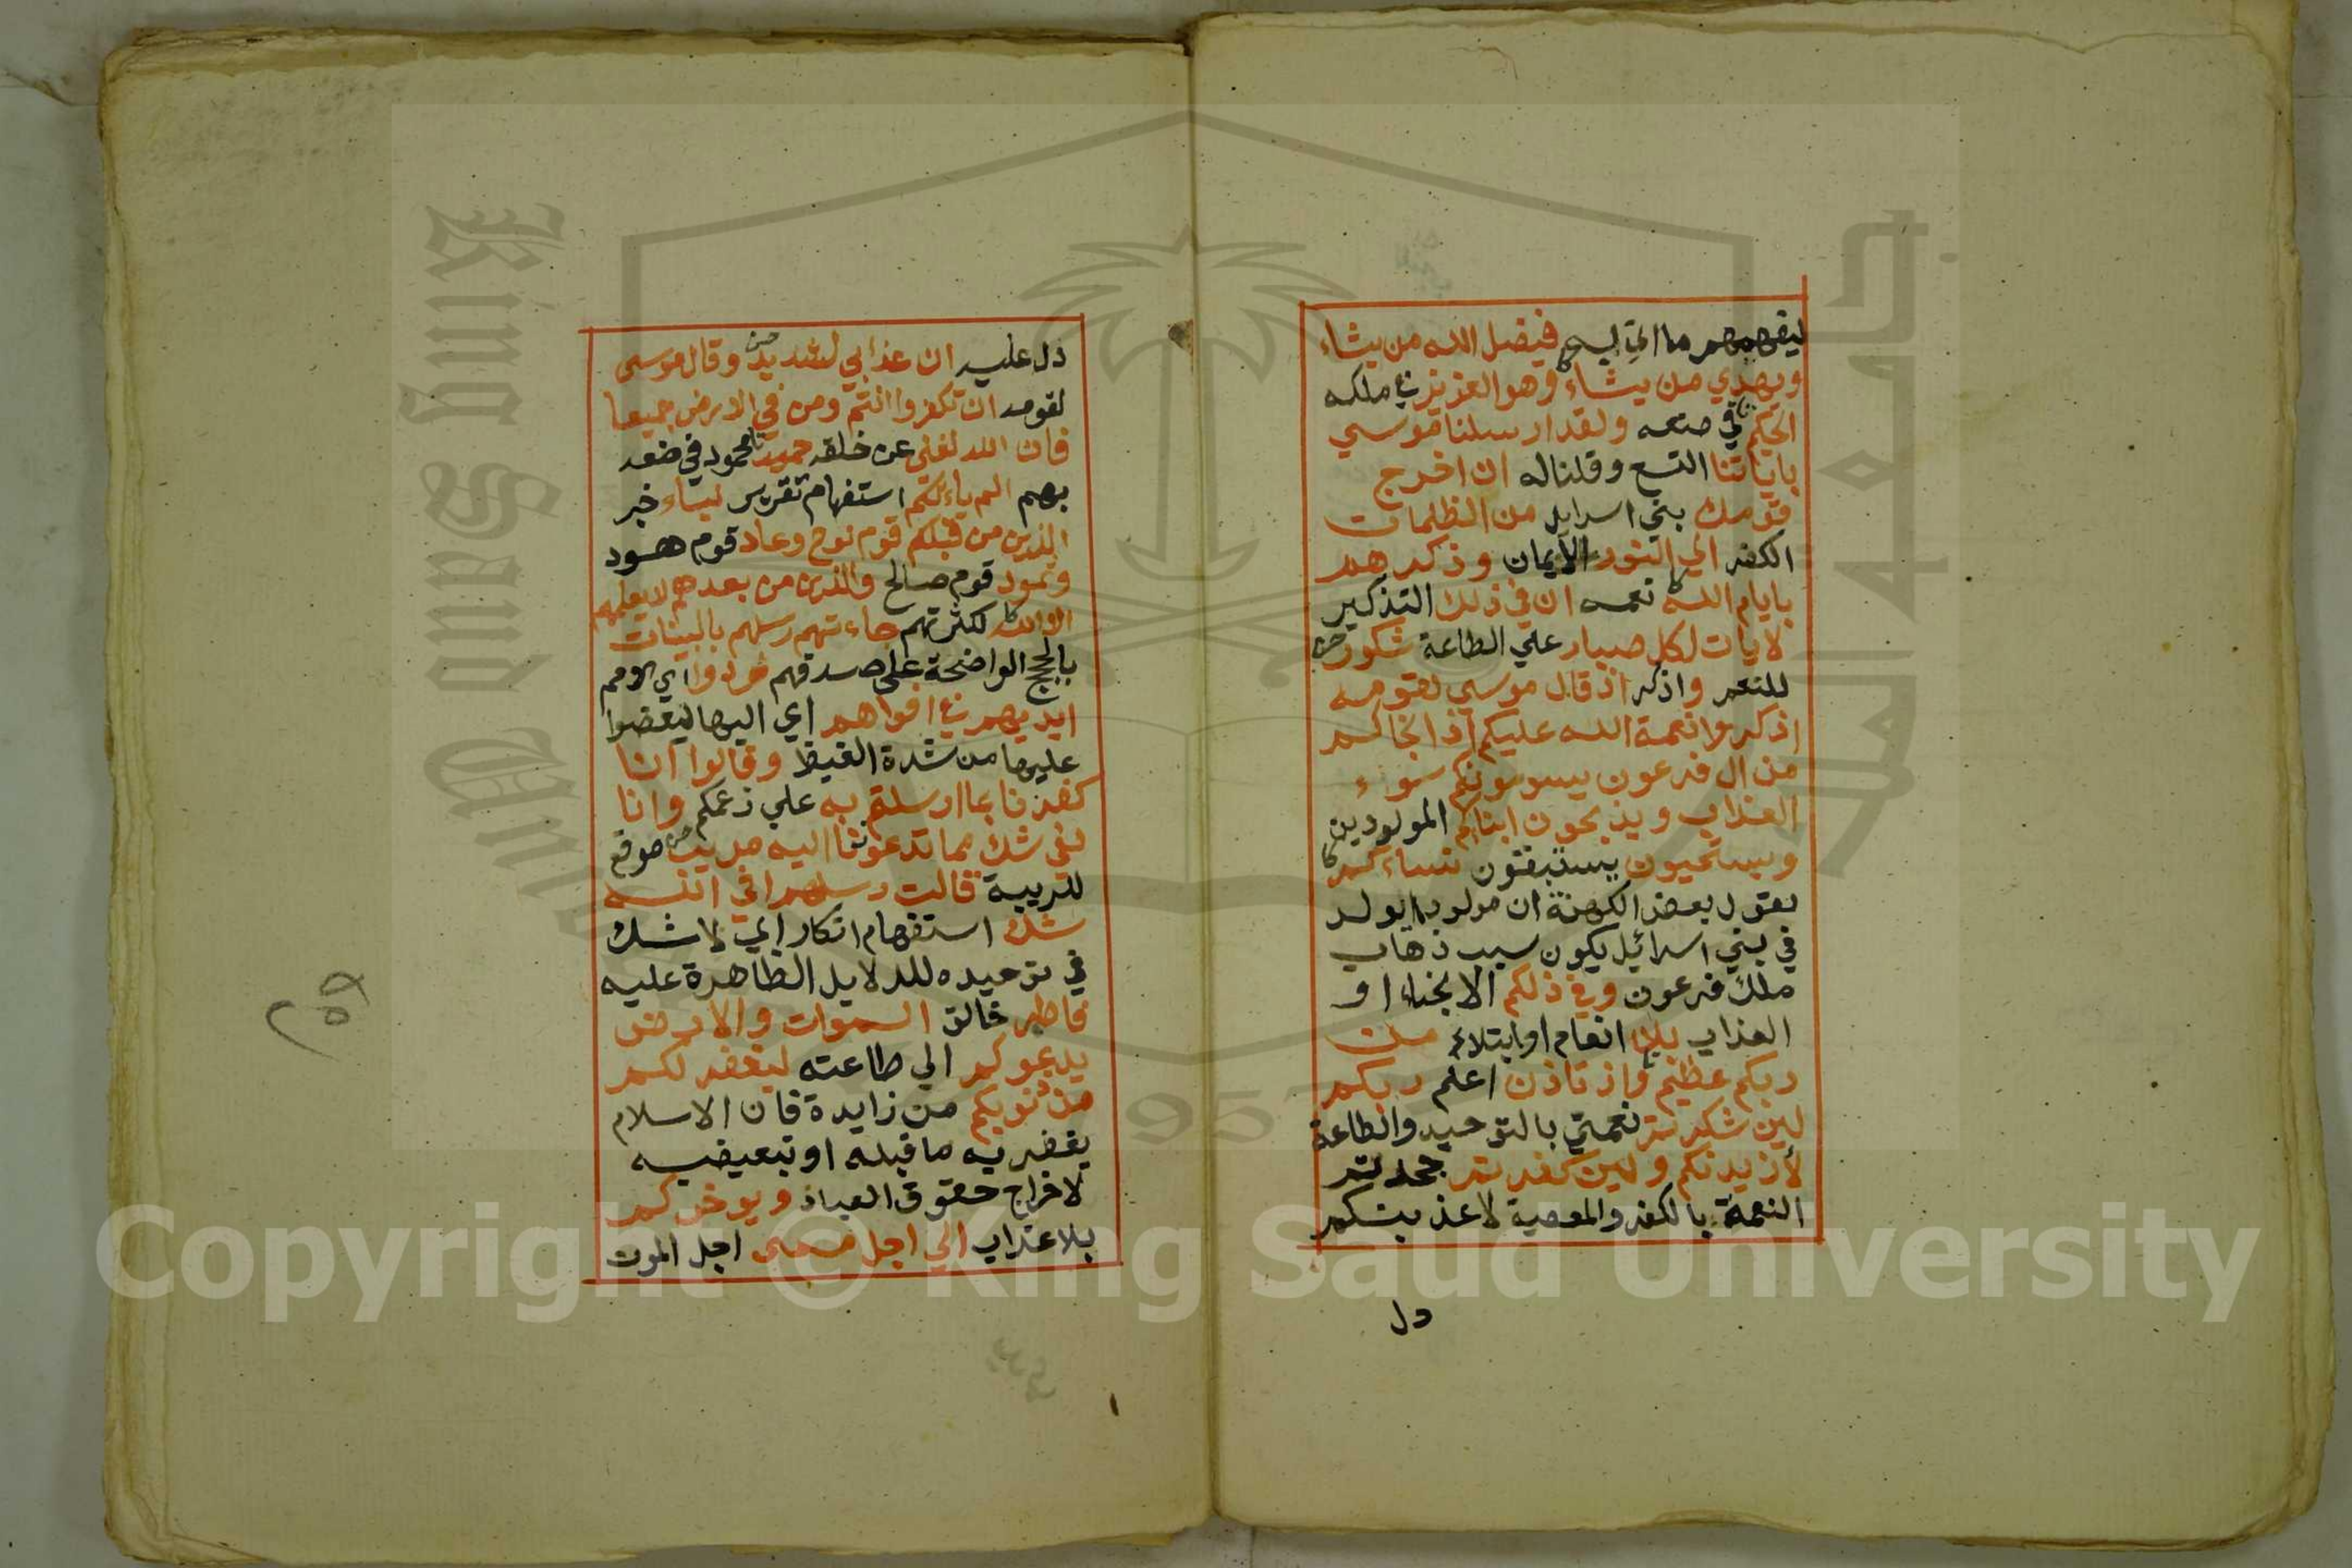 ليفهمهم ما اتي به فيضل الله من يشاء
ويهدي من يشاء وهو العزيز في ملكه
الحكيم في صنعه ولقد ارسلنا موسي
باياتنا التسع وقلنا له ان اخرج
قومك بني اسرايل من الظلمات
الكفر الي النور الايمان وذكرهم
بايام الله نعمه ان في ذلك التذكير
لايات لكل صبار علي الطاعة شكور
للنعم واذكر اذ قال موسي لقومه
اذكروا نعمة الله عليكم اذ انجاكم
من ال فرعون يسومونكم سوء
العذاب ويذبحون ابناكم المولودين
ويستحيون يستبقون نساءكم
بقول بعض الكهنة ان مولودا يولد
في بني اسرائيل يكون سبب ذهاب
ملك فرعون وفي ذلكم الانجاء او
العذاب بلا انعام او ابتلاء من
ربكم عظيم واذ تاذن اعلم ربكم
لين شكرتم نعمتي بالتوحيد والطاعة
لأزيدنكم ولين كفرتم جحدتم
النعمة بالكفر والمعصية لاعذبنكم
دل
دل عليه ان عذابي لشديد وقال موسى
لقومه ان تكفروا انتم ومن في الارض جميعا
فان الله لغني عن خلقه حميد محمود في صنعه
بهم الم ياءتكم استفهام تقرير نباء خبر
الذين من قبلكم قوم نوح وعاد قوم هود
وثمود قوم صالح والذين من بعدهم لا يعلمهم
الا الله لكثرتهم جاءتهم رسلهم بالبينات
بالحجج الواضحة على صدقهم فردوا اي الامم
ايديهم في افواههم اي اليها ليعضوا
عليها من شدة الغيظ وقالوا انا
كفرنا بما ارسلتم به علي زعمكم وانا
لفي شك مما تدعوننا اليه مريب موقع
للريبة قالت رسلهم افي الله
شك استفهام انكار اي لا شك
في توحيده للدلايل الظاهرة عليه
فاطر خالق السموات والارض
يدعوكم الي طاعته ليغفر لكم
من ذنوبكم من زايدة فان الاسلام
يغفر به ما قبله او تبعيضيه
لاخراج حقوق العباد ويوخركم
بلا عذاب الي اجل مسمى اجل الموت
King Saud University
جامعة الملك
1957
Copyright © King Saud University